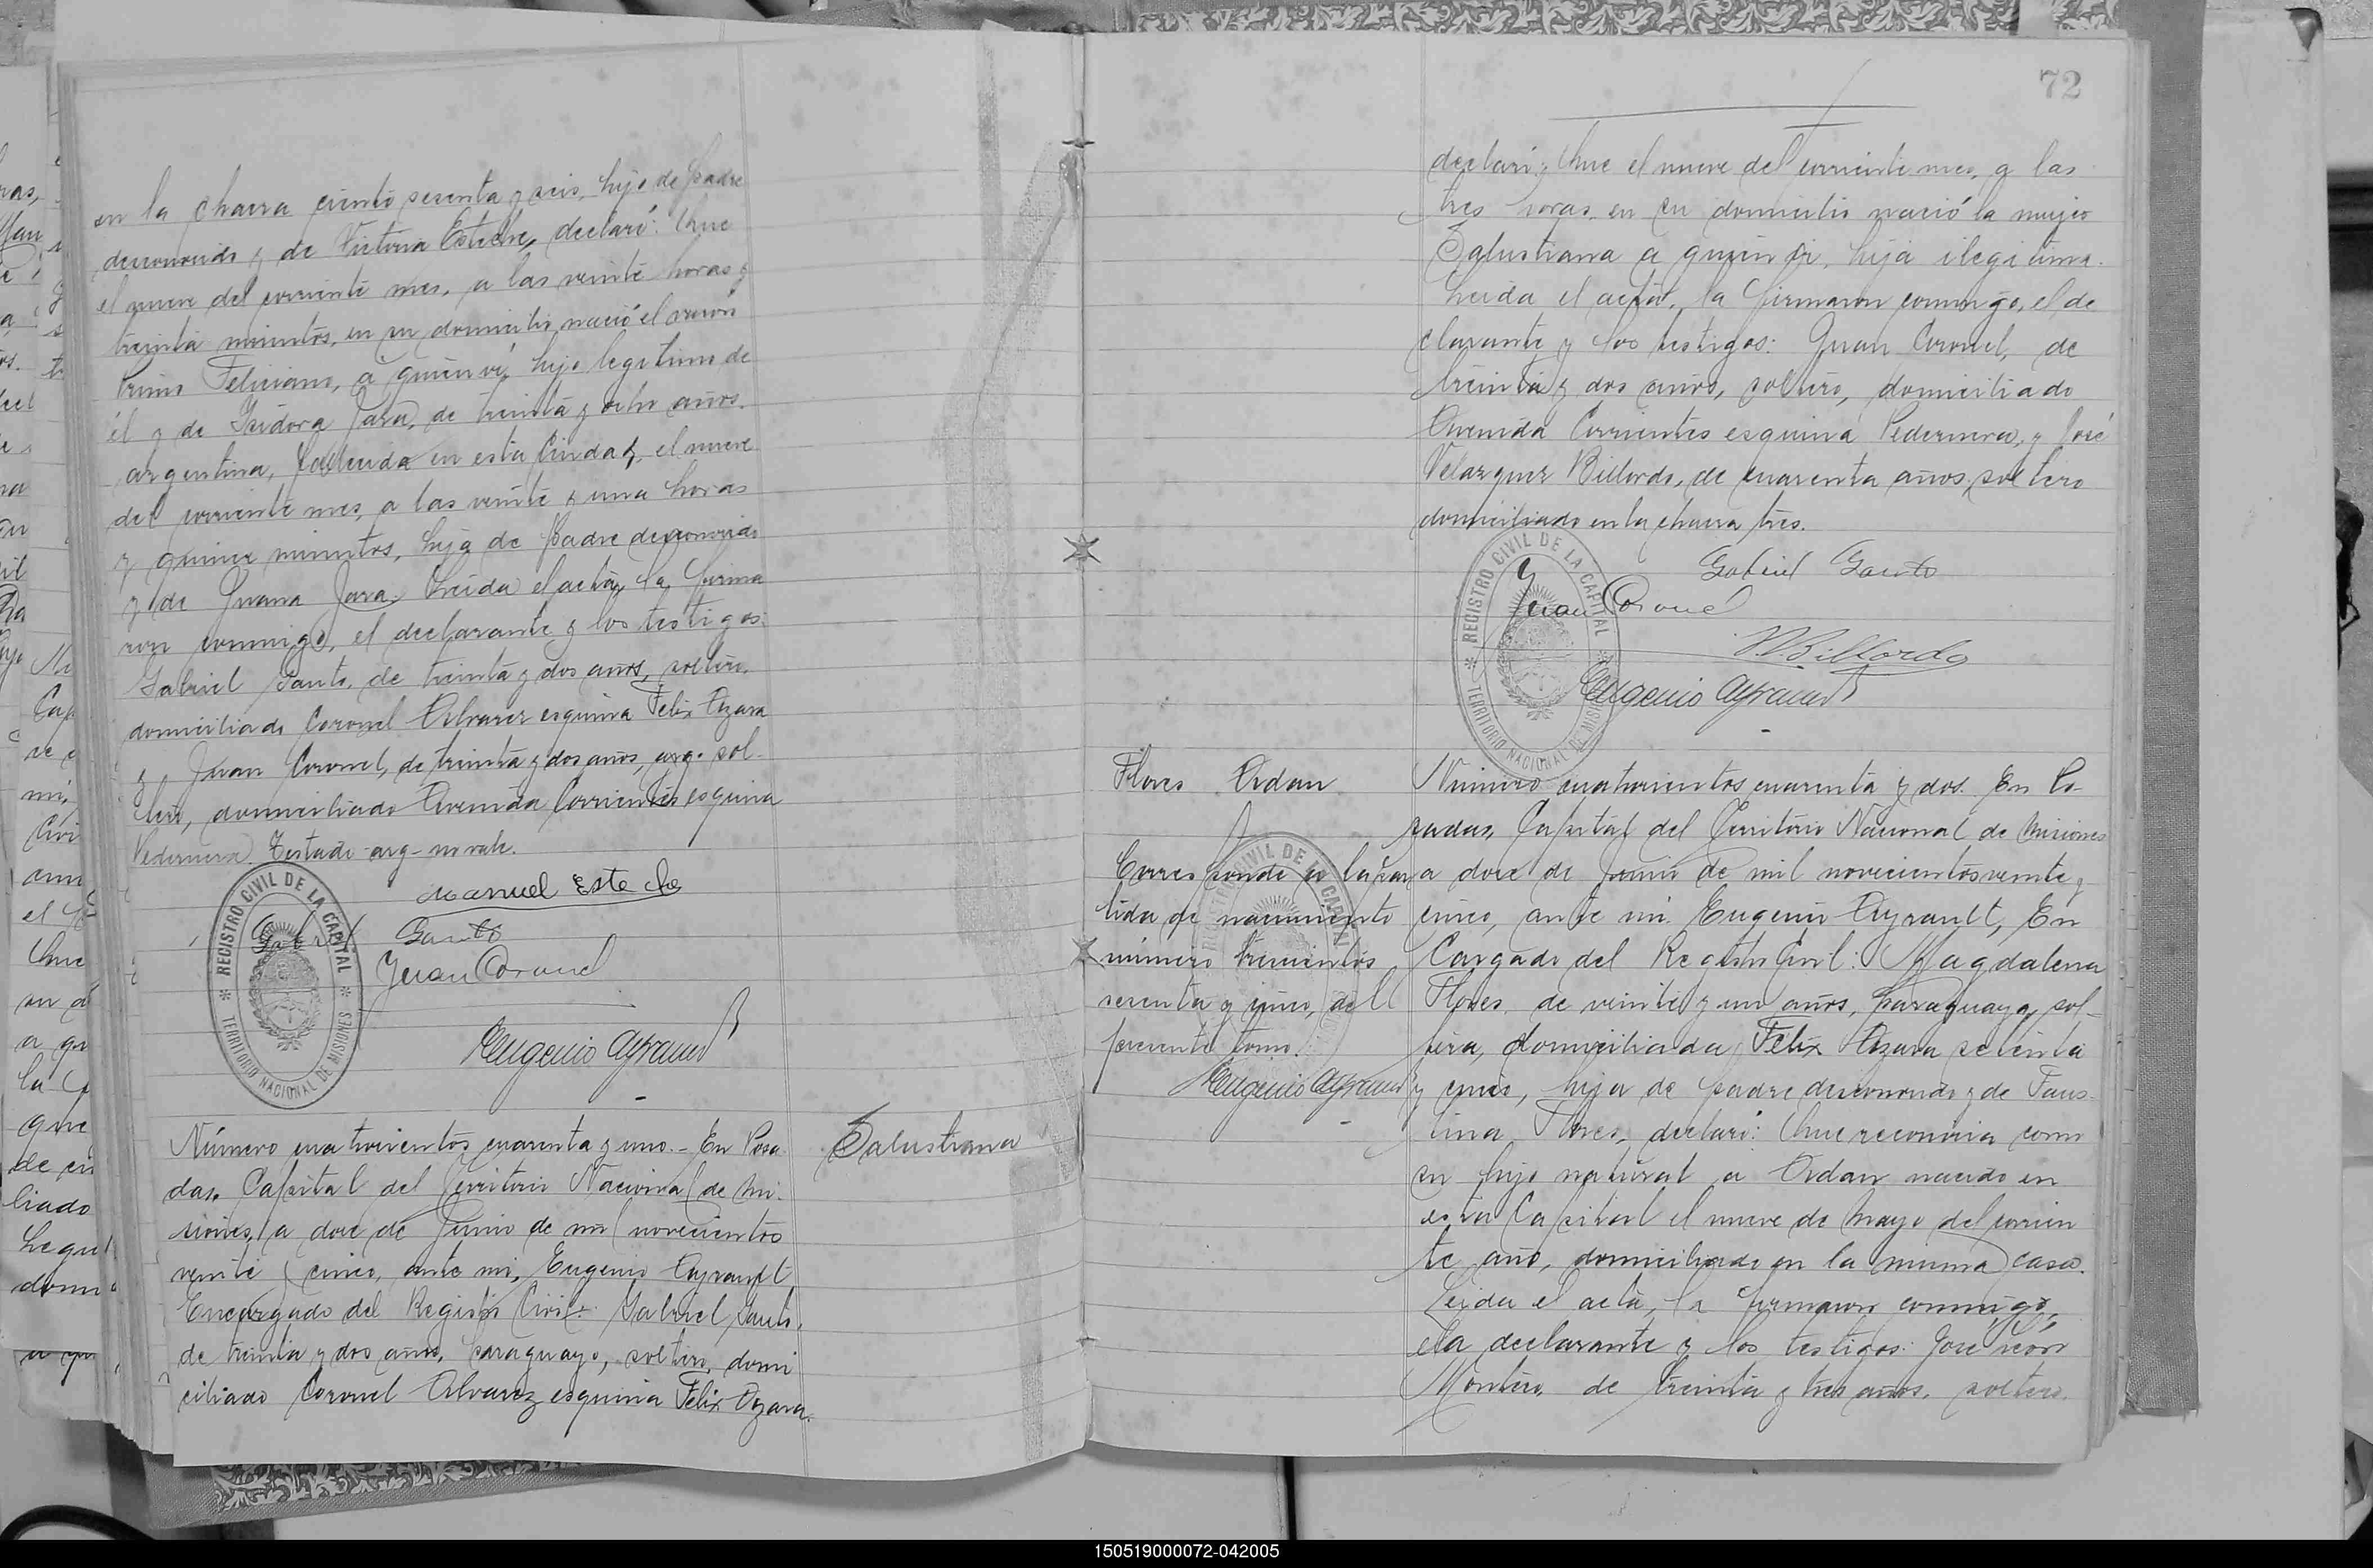 en la chacra ciento sesenta y seis, hijo de padre
desconocido y de Victoria Esteche, declaró: Que
el nueve del corriente mes, a las veinte horas y
treinta minutos, en su domicilio nació el varón
Primo Feliciano, a quien ví, hijo legítimo de
él y de Isidora Jara, de treinta y ocho años,
argentina, fallecida en esta Ciudad, el nueve
del corriente mes, a las veinte y una horas
y quince minutos, hija de padre desconocido
y de Juana Jara. Leida el acta, la firma
ron conmigo, el declarante y los testigos:
Gabriel Gauto, de treinta y dos años, soltero,
domiciliado Coronel Alvarez esquina Felix Azara
y Juan Coronel, de treinta y dos años, arg. sol-
tero, domiciliado Avenida Corrientes esquina
Pedernera. Testado-arg-no vale.
Manuel Esteche
Gabriel Gauto
Juan Coronel
Eugenio Ayrault
REGISTRO CIVIL DE LA CAPITAL
TERRITORIO NACIONAL DE MISIONES
Número cuatrocientos cuarenta y uno.- En Posa
das, Capital del Territorio Nacional de Mi-
siones, a doce de Junio de mil novecientos
veinte y cinco, ante mi, Eugenio Ayrault,
Encargado del Registro Civil: Gabriel Gauto,
de treinta y dos años, paraguayo, soltero, domi
ciliado Coronel Alvarez esquina Felix Azara,
Salustiana
72
declaró: Que el nueve del corriente mes, a las
tres horas, en su domicilio nació la mujer
Salustiana a quien ví, hija ilegítima.
Leida el acta, la firmaron conmigo, el de
clarante y los testigos: Juan Coronel, de
treinta y dos años, soltero, domiciliado
Avenida Corrientes esquina Pedernera, y José
Velazquez Billordo, de cuarenta años, soltero
domiciliado en la chacra tres.
Gabriel Gauto
Juan Coronel
V. Billordo
Eugenio Ayrault
REGISTRO CIVIL DE LA CAPITAL
TERRITORIO NACIONAL DE MISIONES
Flores Ardan
Corresponde a la par
tida de nacimiento
número trescientos
sesenta y cinco, del
presente tomo.
Eugenio Ayrault
Número cuatrocientos cuarenta y dos. En Po-
sadas, Capital del Territorio Nacional de Misiones
a doce de Junio de mil novecientos veinte y
cinco, ante mi, Eugenio Ayrault, En
Cargado del Registro Civil: Magdalena
Flores, de veinte y un años, paraguaya, sol-
tera, domiciliada Felix Azara setenta
y cinco, hija de padre desconocido y de Faus-
tina Flores, declaró: Que reconocia como
su hijo natural a Ardan nacido en
esta Capital el nueve de Mayo del corrien
te año, domiciliado en la misma casa.
Leida el acta, la firmaron conmigo,
la declarante y los testigos: José
Montero, de treinta y tres años, soltero,